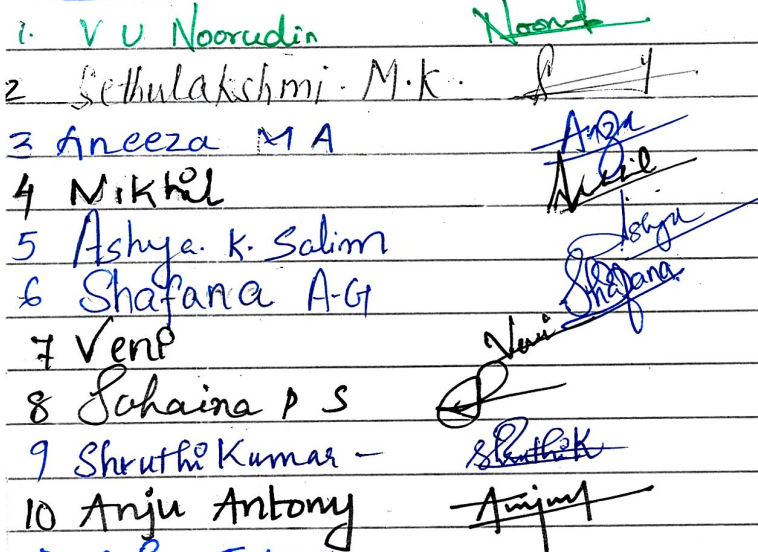 1. V U Noorudin Noorudin
2 Sethulakshmi. M.K.
3 Aneeza M A
4 Nikhil Nikhil
5 Ashya. K. Salim Ashya
6 Shafana A-G Shafana
7 Veni Veni
8 Sahaina P S
9 Shruthi Kumar - ShruthiK
10 Anju Antony